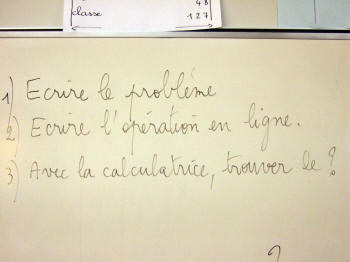 48
classe 127
1) Ecrire le problème
2) Ecrire l'opération en ligne.
3) Avec la calculatrice, trouver le ?
?